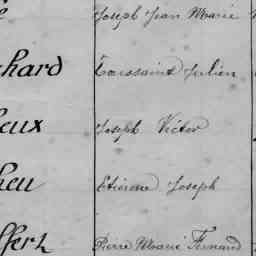 e Joseph Jean Marie
chard Toussaint Julien
eux Joseph Victor
heu Etienne Joseph
ffert Pierre Marie Fernand